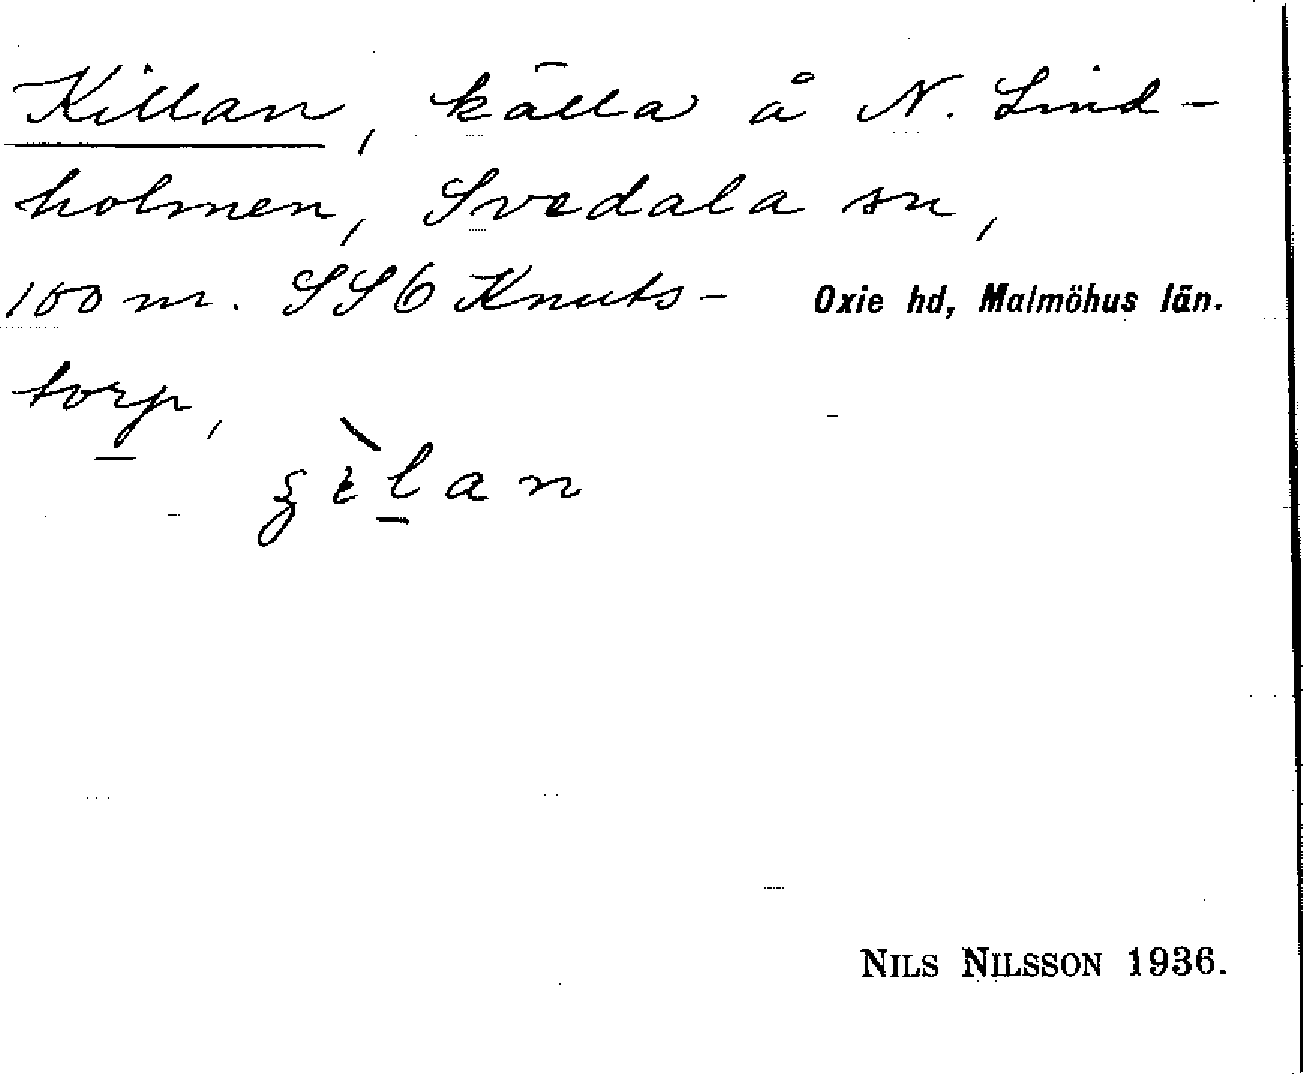 Killan, källa å N. Lind-
holmen, Svedala sn,
100 m. SSÖ Knuts-
Oxie hd, Malmöhus län.
torp,
NILS NILSSON 1936.